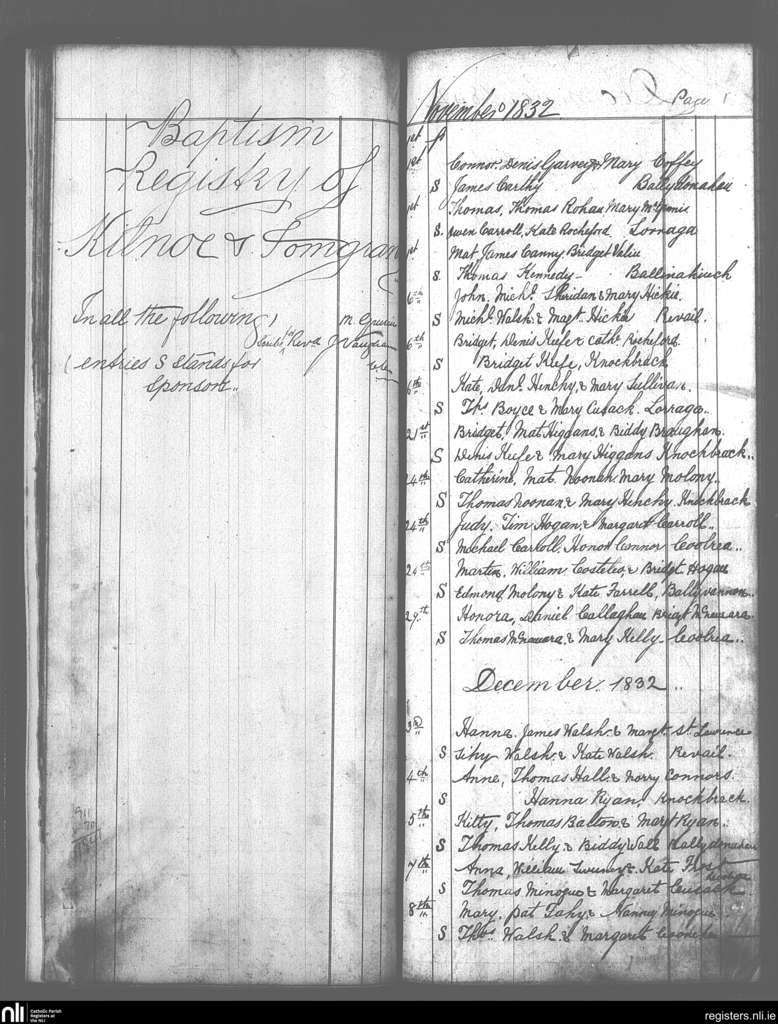 Baptism
Registry of
Kilnoe & Tomgraney
In all the following
entries S stands for
Sponsors..
Revd J Vaughan
Page 1
November 1832
1st
1st Connor, Denis Garvey & Mary Coffey
S James Carthy Ballydonahau
1st Thomas, Thomas Rohan Mary McGinnis
S. Owen Carroll, Kate Rocheford Lorraga
1st Mat, James Canny, Bridget
S. Thomas Kennedy - Ballinahinch
6th John, Michl. Sheridan & Mary Hickie.
S Michl. Walsh & Magt. Hickie Revail.
6th Bridget, Denis Keefe & Cathe. Rocheford.
S Bridget Keefe, Knockbrack
6th Kate, Danl. Hinchy, & Mary Sullivan.
S Ths. Boyce & Mary Cusack. Lorraga..
21st Bridget, Mat Higgans, & Biddy Braughan.
S Denis Keefe & Mary Higgans Knockbrack..
24th Catherine, Mat. Noonan Mary Molony..
S Thomas Noonan, & Mary Hinchy. Knockbrack
24th Judy, Tim Hogan, & Margaret Carroll..
S Michael Carroll, Honor Connor Coolrea..
24th Martin, William Costeloe, & Bridget Hogan
S Edmond Molony & Kate Farrell, Ballyvannon..
29th Honora, Daniel Callaghan Bridgt McNamara
S Thomas McNamara, & Mary Kelly- Coolrea..
December. 1832..
3d Hanna. James Walsh. & Margt. St. Lawrence
S Walsh. & Kate Walsh. Revail.
4th Anne, Thomas Hall. & Norry Connors.
S Hanna Ryan, Knockbrack.
5th Kitty, Thomas Balton & Mary Ryan..
S Thomas Kelly & Biddy Wall Ballydonahau
7th Anna, William & Kate
S Thomas Minogue & Margaret Cusack
8th Mary, Pat Fahy, & Nanny Minogue
S Thos. Walsh. & Margaret
nli
Catholic Parish
Registers at
the NLI
registers.nli.ie